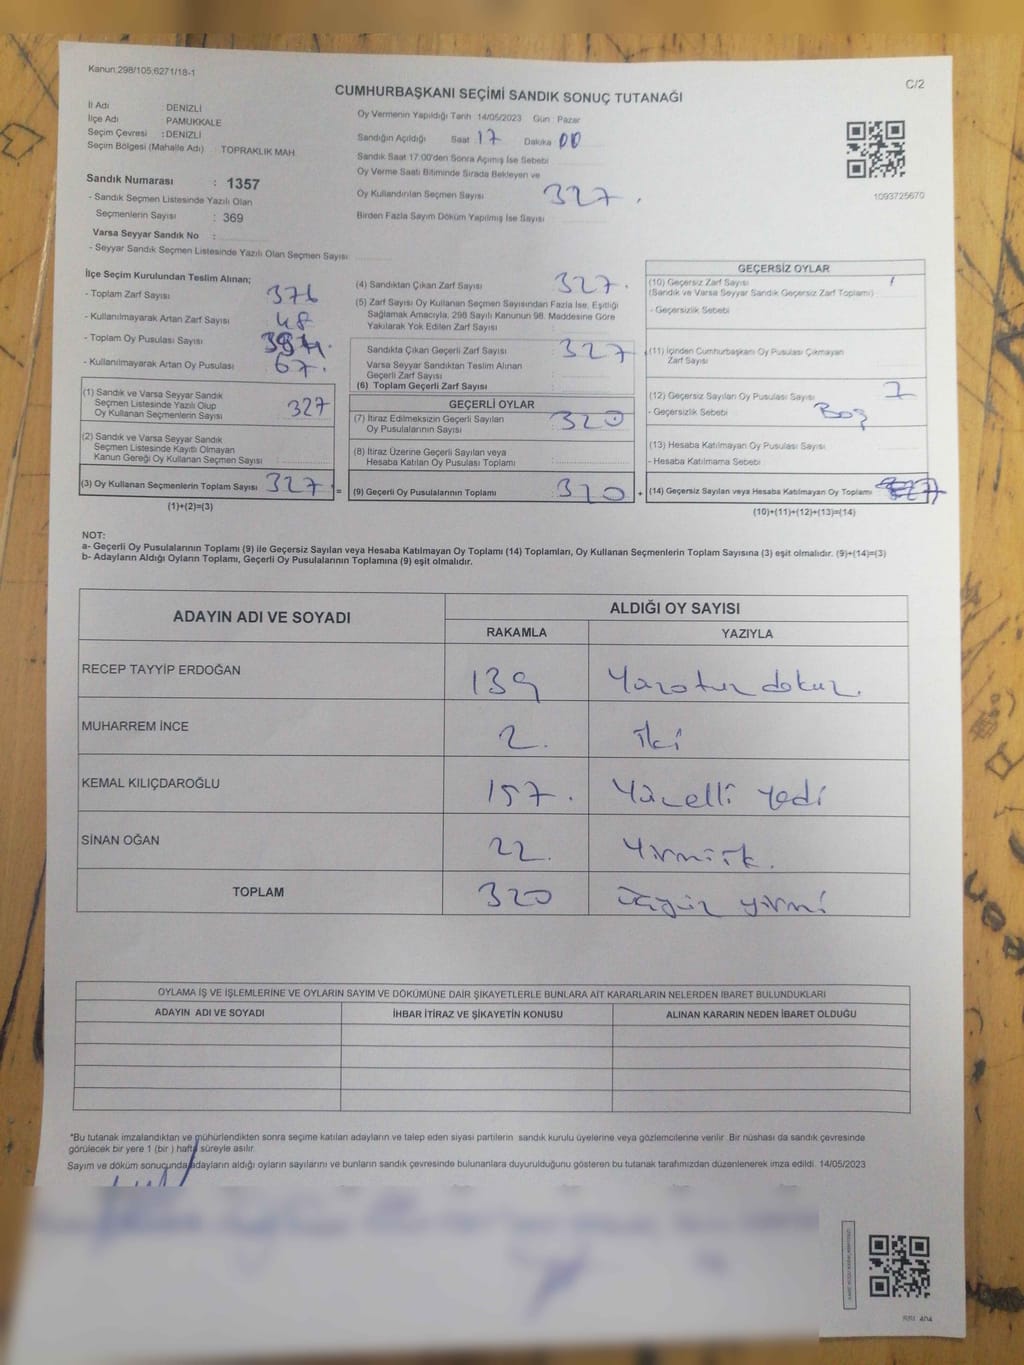 Kanun:298/105;6271/18-1
C/2
CUMHURBAŞKANI SEÇİMİ SANDIK SONUÇ TUTANAĞI
İl Adı : DENİZLİ
İlçe Adı : PAMUKKALE
Seçim Çevresi : DENİZLİ
Seçim Bölgesi (Mahalle Adı) : TOPRAKLIK MAH.
Sandık Numarası : 1357
- Sandık Seçmen Listesinde Yazılı Olan
Seçmenlerin Sayısı : 369
Varsa Seyyar Sandık No :
- Seyyar Sandık Seçmen Listesinde Yazılı Olan Seçmen Sayısı:
Oy Vermenin Yapıldığı Tarih 14/05/2023 Gün : Pazar
Sandığın Açıldığı Saat 17 Dakika 00
Sandık Saat 17:00'den Sonra Açılmış İse Sebebi
Oy Verme Saati Bitiminde Sırada Bekleyen ve
Oy Kullandırılan Seçmen Sayısı 327.
Birden Fazla Sayım Döküm Yapılmış İse Sayısı
1093725670
İlçe Seçim Kurulundan Teslim Alınan;
- Toplam Zarf Sayısı 376
- Kullanılmayarak Artan Zarf Sayısı 48
- Toplam Oy Pusulası Sayısı
- Kullanılmayarak Artan Oy Pusulası 67.
(1) Sandık ve Varsa Seyyar Sandık
Seçmen Listesinde Yazılı Olup
Oy Kullanan Seçmenlerin Sayısı 327
(2) Sandık ve Varsa Seyyar Sandık
Seçmen Listesinde Kayıtlı Olmayan
Kanun Gereği Oy Kullanan Seçmen Sayısı
(3) Oy Kullanan Seçmenlerin Toplam Sayısı 327 =
(1)+(2)=(3)
(4) Sandıktan Çıkan Zarf Sayısı 327.
(5) Zarf Sayısı Oy Kullanan Seçmen Sayısından Fazla İse, Eşitliği
Sağlamak Amacıyla, 298 Sayılı Kanunun 98. Maddesine Göre
Yakılarak Yok Edilen Zarf Sayısı
Sandıkta Çıkan Geçerli Zarf Sayısı 327.
Varsa Seyyar Sandıktan Teslim Alınan
Geçerli Zarf Sayısı
(6) Toplam Geçerli Zarf Sayısı
GEÇERLİ OYLAR
(7) İtiraz Edilmeksizin Geçerli Sayılan
Oy Pusulalarının Sayısı 320
(8) İtiraz Üzerine Geçerli Sayılan veya
Hesaba Katılan Oy Pusulası Toplamı
(9) Geçerli Oy Pusulalarının Toplamı 320 +
GEÇERSİZ OYLAR
(10) Geçersiz Zarf Sayısı
(Sandık ve Varsa Seyyar Sandık Geçersiz Zarf Toplamı)
- Geçersizlik Sebebi
(11) İçinden Cumhurbaşkanı Oy Pusulası Çıkmayan
Zarf Sayısı
(12) Geçersiz Sayılan Oy Pusulası Sayısı 7
- Geçersizlik Sebebi Boş
(13) Hesaba Katılmayan Oy Pusulası Sayısı
- Hesaba Katılmama Sebebi
(14) Geçersiz Sayılan veya Hesaba Katılmayan Oy Toplamı 7
(10)+(11)+(12)+(13)=(14)
NOT:
a- Geçerli Oy Pusulalarının Toplamı (9) ile Geçersiz Sayılan veya Hesaba Katılmayan Oy Toplamı (14) Toplamları, Oy Kullanan Seçmenlerin Toplam Sayısına (3) eşit olmalıdır. (9)+(14)=(3)
b- Adayların Aldığı Oyların Toplamı, Geçerli Oy Pusulalarının Toplamına (9) eşit olmalıdır.
ADAYIN ADI VE SOYADI
ALDIĞI OY SAYISI
RAKAMLA YAZIYLA
RECEP TAYYİP ERDOĞAN 139 Yüzotuz dokuz.
MUHARREM İNCE 2. İki
KEMAL KILIÇDAROĞLU 157. Yüzelli Yedi
SİNAN OĞAN 22. Yirmiik.
TOPLAM 320 üçyüz yirmi
OYLAMA İŞ VE İŞLEMLERİNE VE OYLARIN SAYIM VE DÖKÜMÜNE DAİR ŞİKAYETLERLE BUNLARA AİT KARARLARIN NELERDEN İBARET BULUNDUKLARI
ADAYIN ADI VE SOYADI İHBAR İTİRAZ VE ŞİKAYETİN KONUSU ALINAN KARARIN NEDEN İBARET OLDUĞU
*Bu tutanak imzalandıktan ve mühürlendikten sonra seçime katılan adayların ve talep eden siyasi partilerin sandık kurulu üyelerine veya gözlemcilerine verilir. Bir nüshası da sandık çevresinde
görülecek bir yere 1 (bir ) hafta süreyle asılır.
Sayım ve döküm sonucunda adayların aldığı oyların sayılarını ve bunların sandık çevresinde bulunanlara duyurulduğunu gösteren bu tutanak tarafımızdan düzenlenerek imza edildi. 14/05/2023